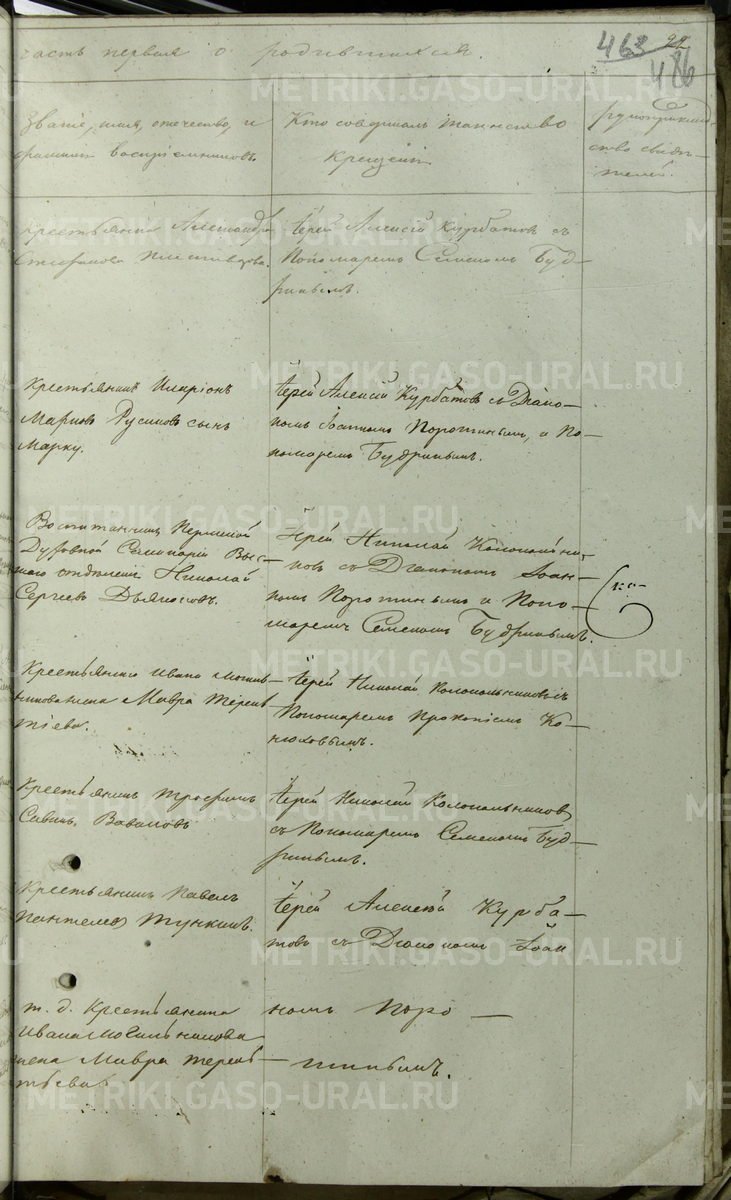 часть первая о родившихся.
463 22
486
Званіе, имя, отчество, и
фамилія воспріемниковъ.
Кто совершалъ таинство
крещенія.
рукоприклад-
ство свидѣ-
телей.
Крестьянка Александра
Стефанова
Іерей Алексій Курбатовъ съ
Пономаремъ Семеномъ Буд-
ринымъ.
Крестьянинъ Иларіонъ
Марковъ Русиновъ сынъ
Марку.
Іерей Алексій Курбатовъ съ Діако-
номъ Іоанномъ Поротинымъ, и По-
номаремъ Будринымъ.
Воспитанникъ Пермской
Духовной Семинаріи Выс-
шаго отдѣленія Николай
Сергѣевъ Дьяконовъ.
Іерей Николай Колокольни-
ковъ съ Діакономъ Іоан-
номъ Поротинымъ и Поно-
маремъ Семеномъ Будринымъ.
Крестьянина Ивана Могиль-
никова жена Мавра Терен-
тіева.
Іерей Николай Колокольниковъ съ
Пономаремъ Прокопіемъ Ко-
нюховымъ.
Крестьянинъ Трофимъ
Савинъ Вавиловъ
Іерей Николай Колокольниковъ
съ Пономаремъ Семеномъ Буд-
ринымъ.
Крестьянинъ Павелъ
Пантелеевъ Тункинъ.
Іерей Алексѣй Курба-
товъ съ Діакономъ Іоан
номъ Поро-
тинымъ.
т. д. Крестьянина
Ивана Могильникова
жена Мавра Терен-
тьева
METRIKI.GASO-URAL.RU